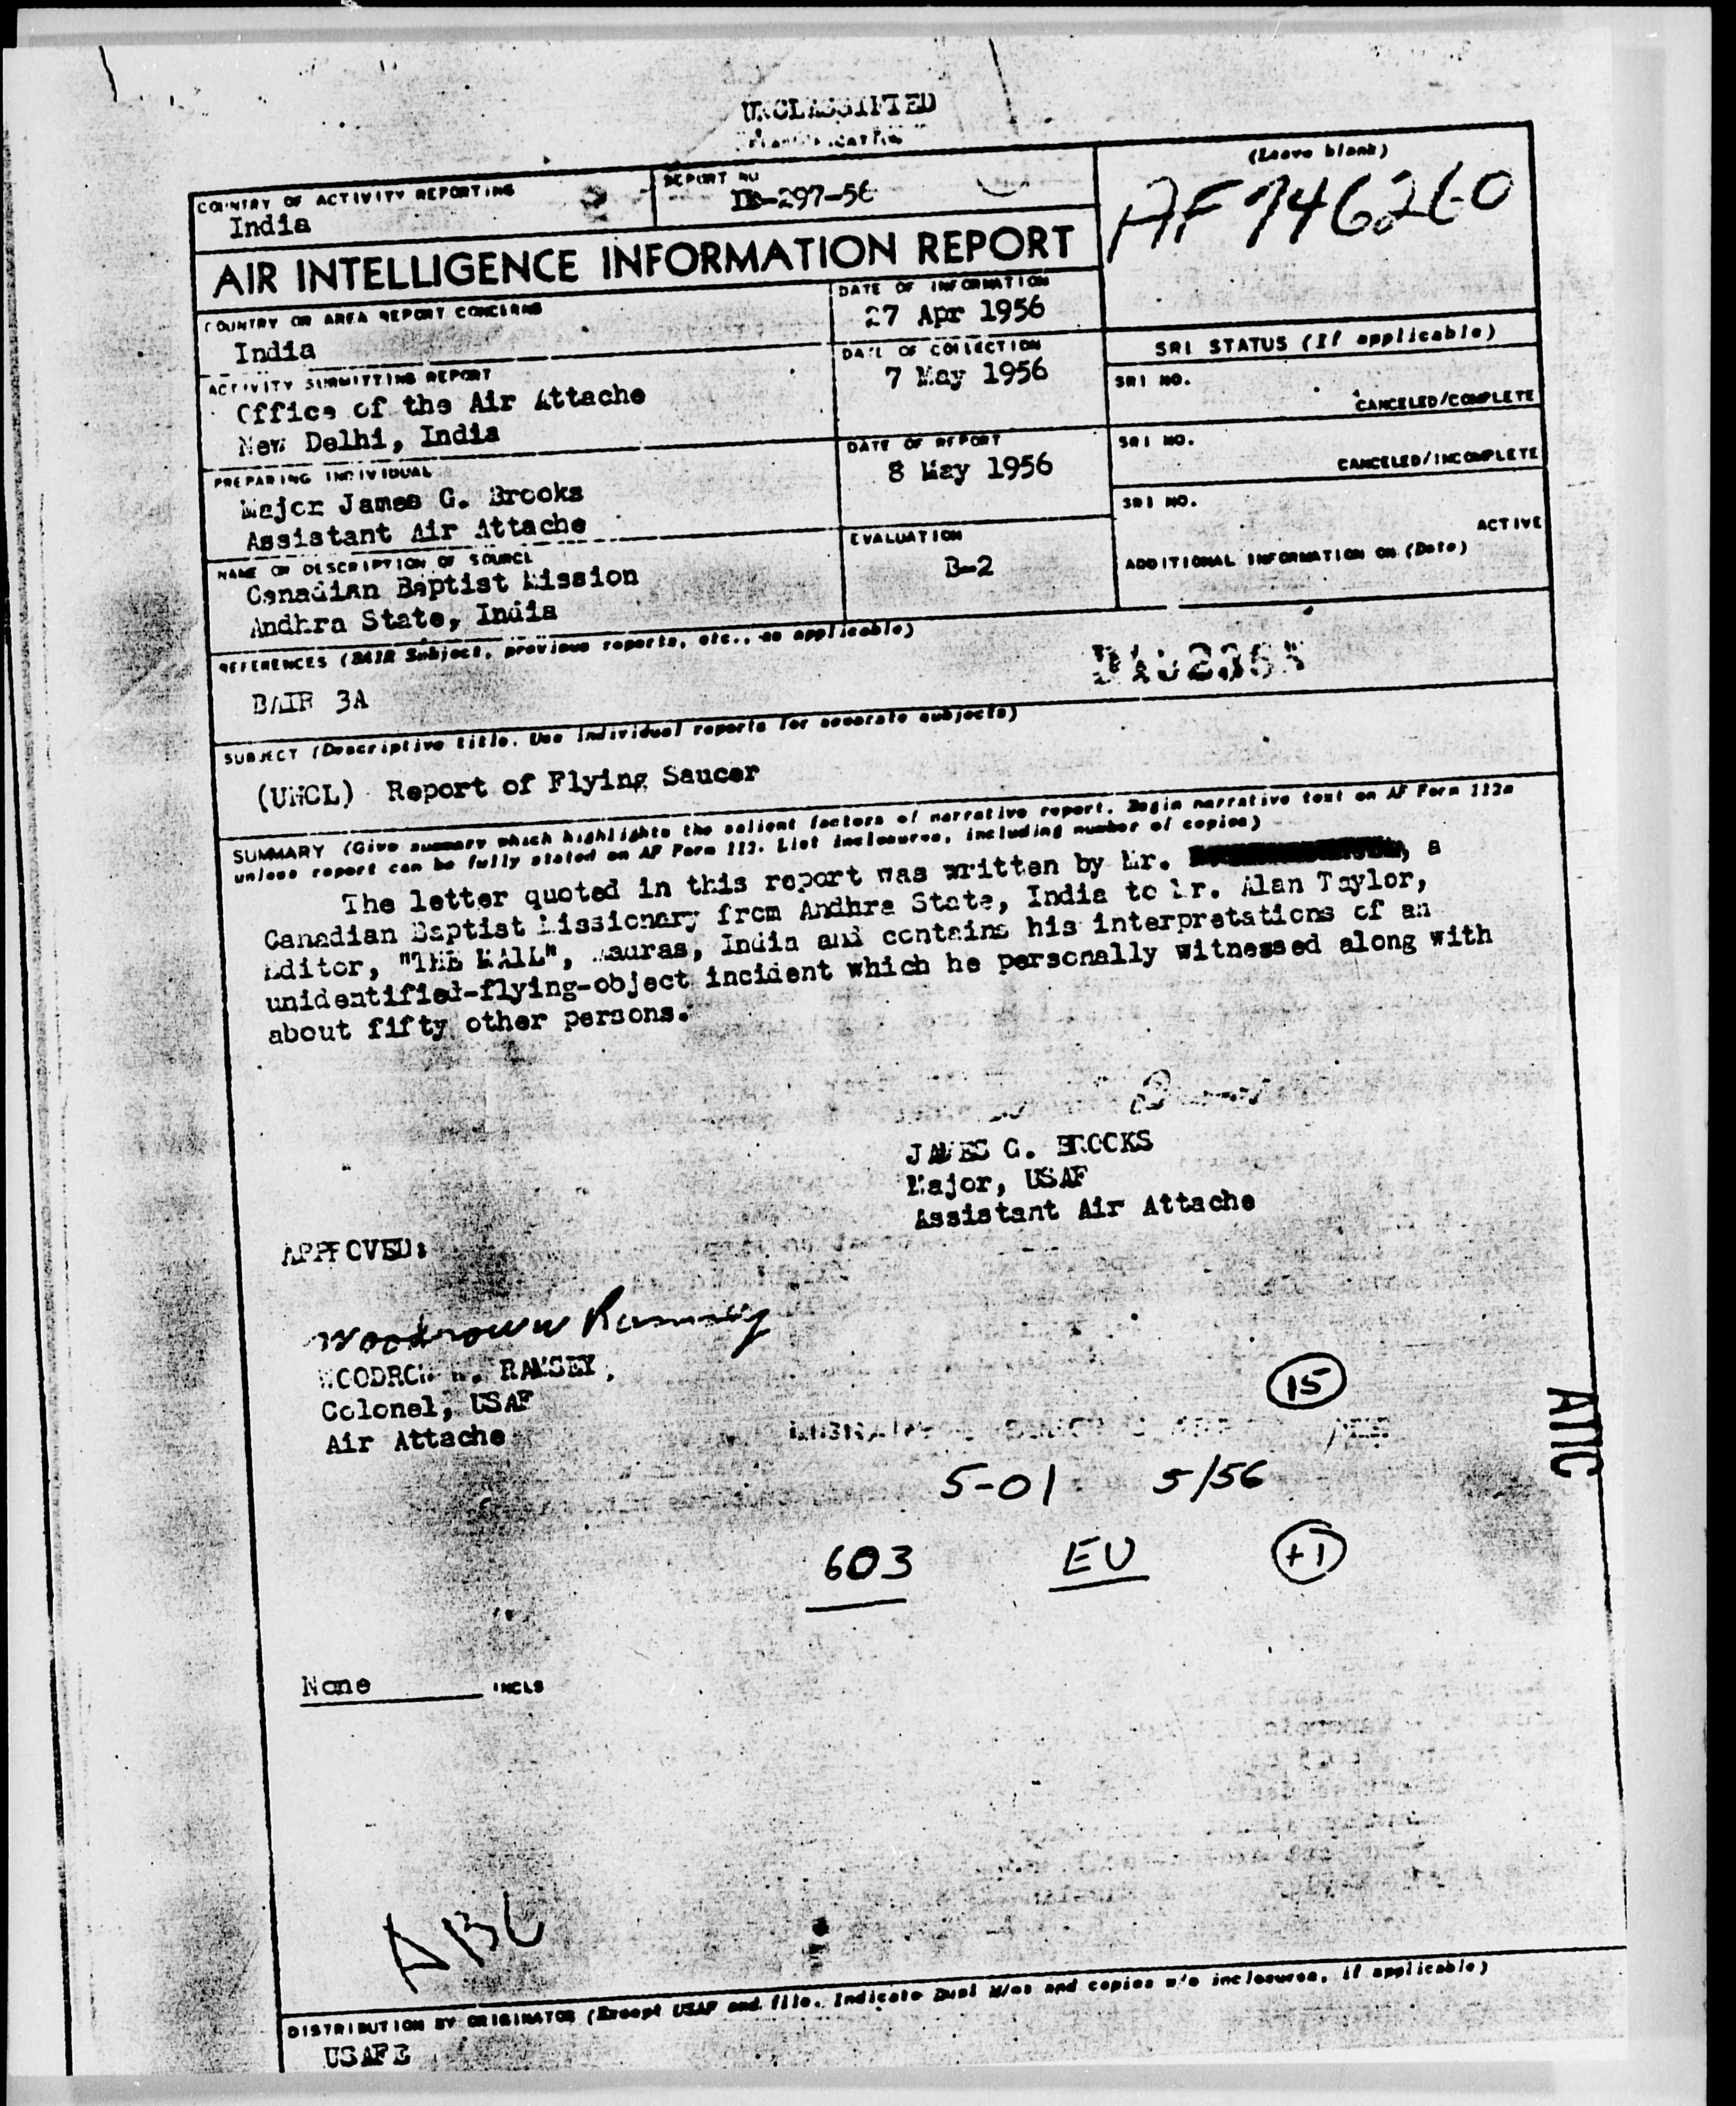 UNCLASSIFIED
(Leave blank)
COUNTRY OF ACTIVITY REPORTING
India
REPORT NO
-297-56
AF 746260
AIR INTELLIGENCE INFORMATION REPORT
COUNTRY OR AREA REPORT CONCERNS
India
DATE OF INFORMATION
27 Apr 1956
SRI STATUS (If applicable)
ACTIVITY SUBMITTING REPORT
Office of the Air Attache
New Delhi, India
DATE OF COLLECTION
7 May 1956
SRI NO.
CANCELED/COMPLETE
PREPARING INDIVIDUAL
Major James G. Brooks
Assistant Air Attache
DATE OF REPORT
8 May 1956
SRI NO.
CANCELED/INCOMPLETE
NAME OR DESCRIPTION OF SOURCE
Canadian Baptist Mission
Andhra State, India
EVALUATION
B-2
SRI NO.
ACTIVE
ADDITIONAL INFORMATION ON (Date)
REFERENCES (BAIR Subject, previous reports, etc., as applicable)
BAIR 3A
SUBJECT (Descriptive title. Use individual reports for separate subjects)
(UNCL) Report of Flying Saucer
SUMMARY (Give summary which highlights the salient factors of narrative report. Begin narrative text on AF Form 112a
unless report can be fully stated on AF Form 112. List inclosures, including number of copies)
The letter quoted in this report was written by Mr. , a
Canadian Baptist Missionary from Andhra State, India to Mr. Alan Taylor,
Editor, "THE MAIL", Madras, India and contains his interpretations of an
unidentified-flying-object incident which he personally witnessed along with
about fifty other persons.
JAMES G. BROOKS
Major, USAF
Assistant Air Attache
APPROVED:
Woodrow W Ramsey
WOODROW W. RAMSEY,
Colonel, USAF
Air Attache
15
ATIC
5-01 5/56
603 EU +1
None INCLS
DISTRIBUTION BY ORIGINATOR (Except USAF and file. Indicate Dupl M/as and copies w/o inclosures, if applicable)
USAFE